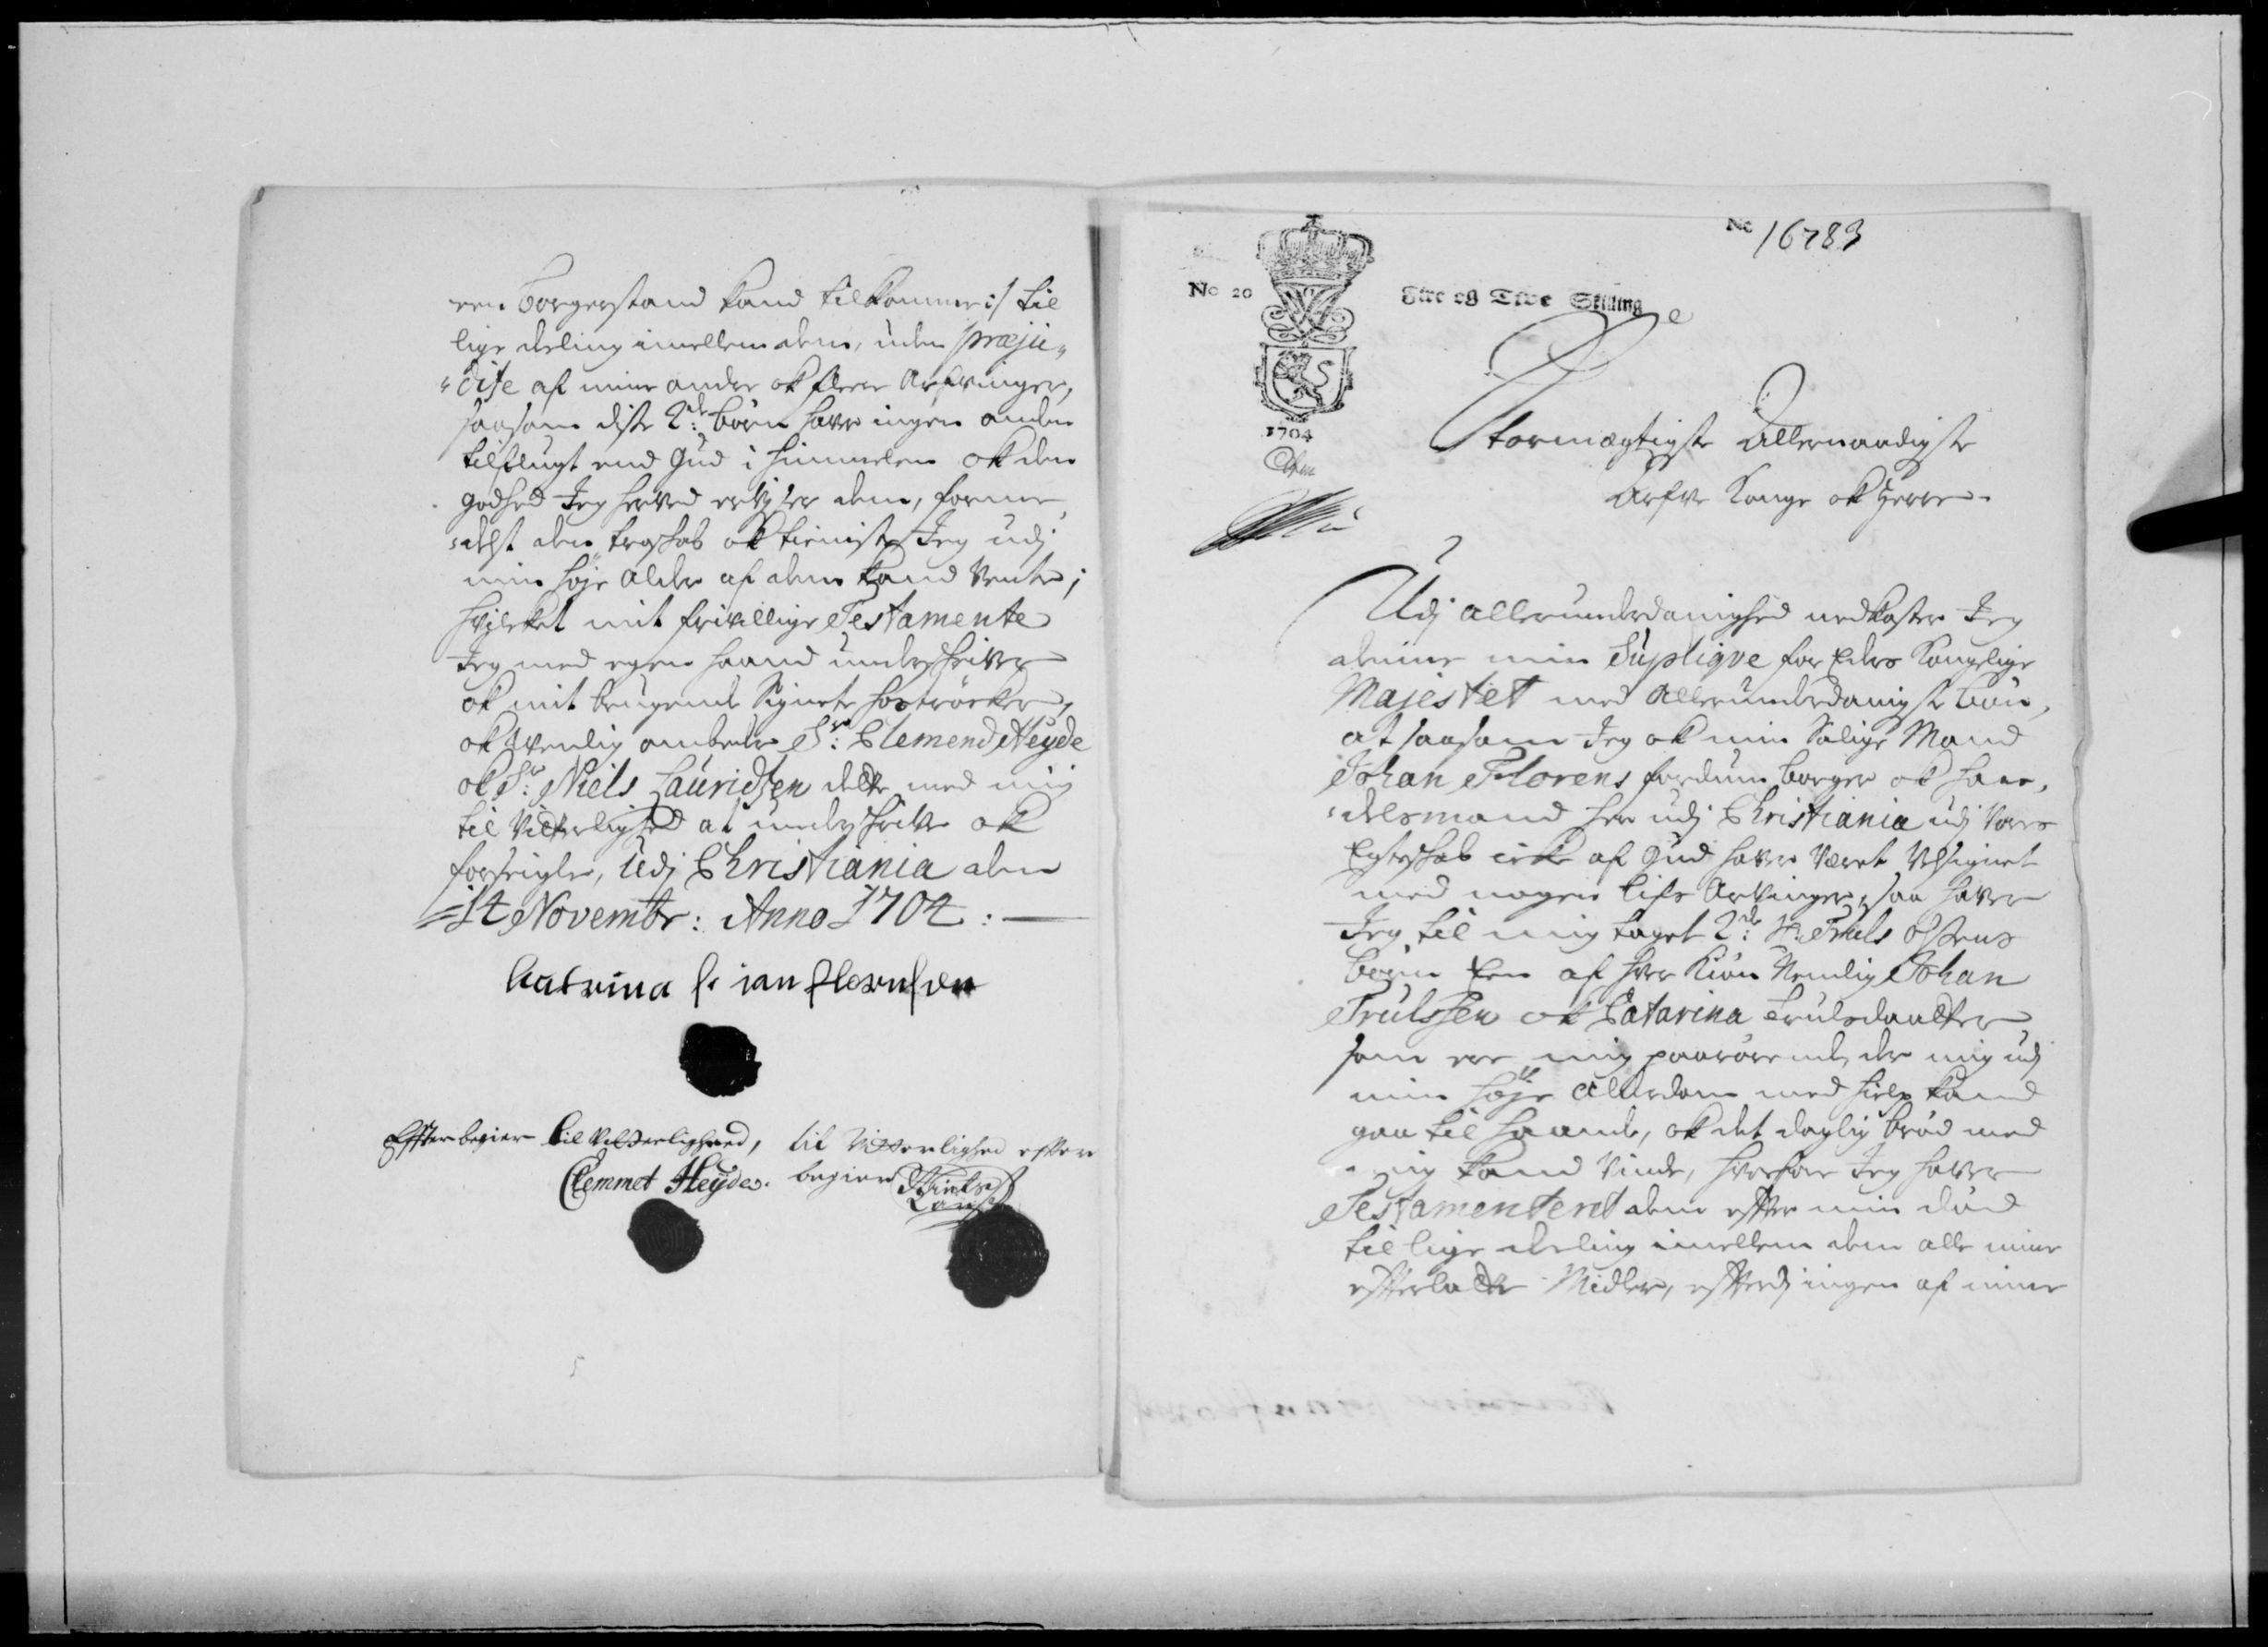 een Borgerstand kand tilkomme :/ til
lige deling imellem dem, uden præju„
„dise af mine andre ok fleere Arfvinger,
saasom diste 2de: børn haver ingen anden
tilflugt end Gud i himmelen ok den
godhed Jeg herved erviser dem, forme¬
¬delst den troskab ok tieniste Jeg udj
min høje alder af dem kand vente;
hvilcket mit frivillige Testamente
Jeg med egen haand underskriver
ok mit brugende Signete hostrøcker,
ok venlig ombeder Sr: Clemend Heyde
ok Sr: Niels Lauridsen dette med mig
til Vitterlighed at underskrive ok
forseigle, Udj Christiania den
14 Novembr: Anno 1704 : —
Catrina sl ian florensen
Effter begier til vitterlighed,
Clemmet Heyde.
til Vitterlighed efter
begier Niels
Laus
No 16783
No 20
Tive og Tive Skilling
1704
Stormægtigste Allernaadigste
Arfve Konge ok Herre
Udj allerunderdanighed nedkaster Jeg
denne min Supliqve for Eders Kongelige
Majestet med allerunderdanigste bøn,
at saasom Jeg ok min Salige Mand
Johan Florens fordum borger ok han¬
¬delsmand her udj Christiania udj vores
Egteskab icke af Gud haver været Velsignet
med nogen lifs Arvinger, saa haver
Jeg til mig taget 2de: Hr: Truls Olsens
børn Een af hver Kiøn Nemlig Johan
Trulssen ok Catarina Trulsdaatter
som ere mig paarørende, der mig udj
min høje Alderdom med hielp kand
gaa til haande, ok det daglig brød med
mig kand vinde, hvorfore Jeg haver
Testamenteret dem effter min død
til lige deling imellem dem alle mine
effterladte Midler, effterdj ingen af mine